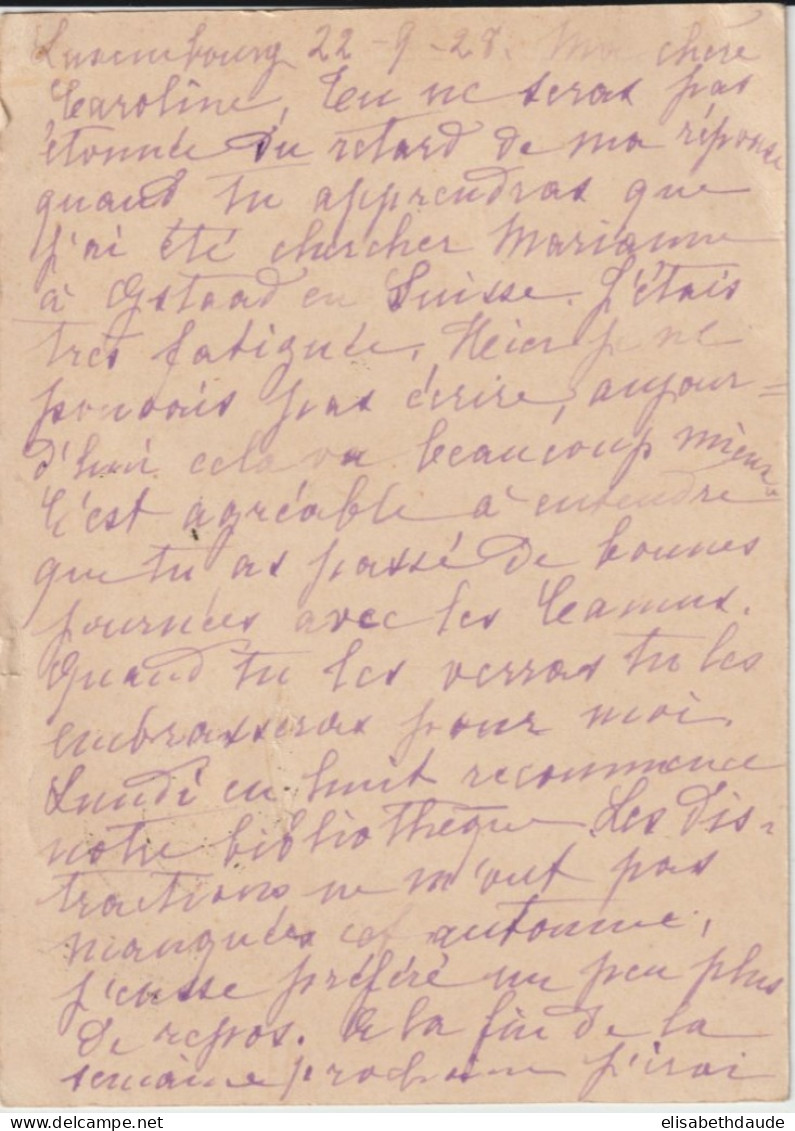 Luxembourg 22-9-28. Ma chere
Caroline, Tu ne seras pas
étonnée du retard de ma réponse
quand tu apprendras que
j'ai été chercher Marianne
à Gstaad en Suisse. J'étais
très fatiguée. Hier je ne
pouvais pas écrire, aujour=
d'hui cela va beaucoup mieux.
C'est agréable à entendre
que tu as passé de bonnes
journées avec les Camus.
Quand tu les verras tu les
embrasseras pour moi.
Lundi en huit recommence
notre bibliothèque. Les dis-
tractions ne m'ont pas
manquées cet automne,
j'eusse préféré un peu plus
de repos. A la fin de la
semaine prochaine j'irai
elisabethdaude